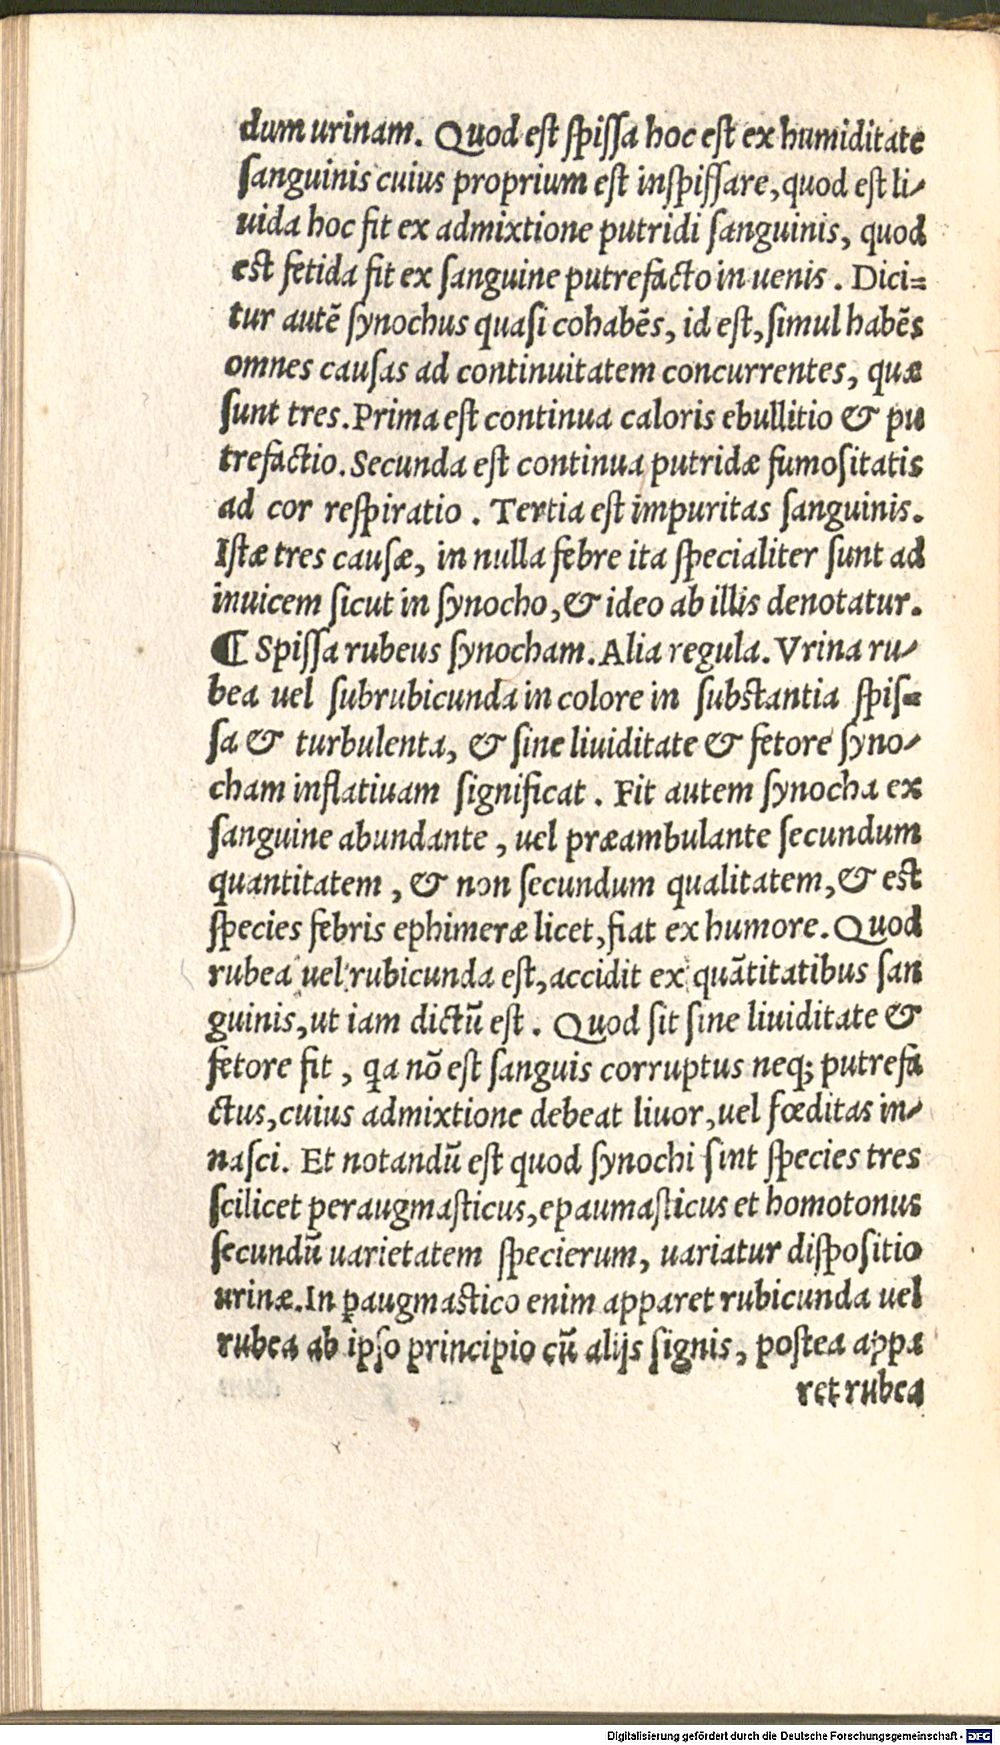 dum urinam. Quod est spissa hoc est ex humiditate
sanguinis cuius proprium est inspissare, quod est li-
uida hoc fit ex admixtione putridi sanguinis, quod
est fetida fit ex sanguine putrefacto in uenis. Dici=
tur autē synochus quasi cohabēs, id est, simul habēs
omnes causas ad continuitatem concurrentes, quæ
sunt tres. Prima est continua caloris ebullitio & pu
trefactio. Secunda est continua putridæ fumositatis
ad cor respiratio. Tertia est impuritas sanguinis.
Istæ tres causæ, in nulla febre ita specialiter sunt ad
inuicem sicut in synocho, & ideo ab illis denotatur.
¶ Spissa rubeus synocham. Alia regula. Vrina ru-
bea uel subrubicunda in colore in substantia spis=
sa & turbulenta, & sine liuiditate & fetore syno-
cham inflatiuam significat. Fit autem synocha ex
sanguine abundante, uel præambulante secundum
quantitatem, & non secundum qualitatem, & est
species febris ephimeræ licet, fiat ex humore. Quod
rubea uel rubicunda est, accidit ex quātitatibus san
guinis, ut iam dictū est. Quod sit sine liuiditate &
fetore fit, qa nō est sanguis corruptus neq; putrefa
ctus, cuius admixtione debeat liuor, uel fœditas in-
nasci. Et notandū est quod synochi sint species tres
scilicet peraugmasticus, epaumasticus et homotonus
secundū uarietatem specierum, uariatur dispositio
urinæ. In ꝑaugmastico enim apparet rubicunda uel
rubea ab ipso principio cū alijs signis, postea appa
ret rubea
Digitalisierung gefördert durch die Deutsche Forschungsgemeinschaft - DFG